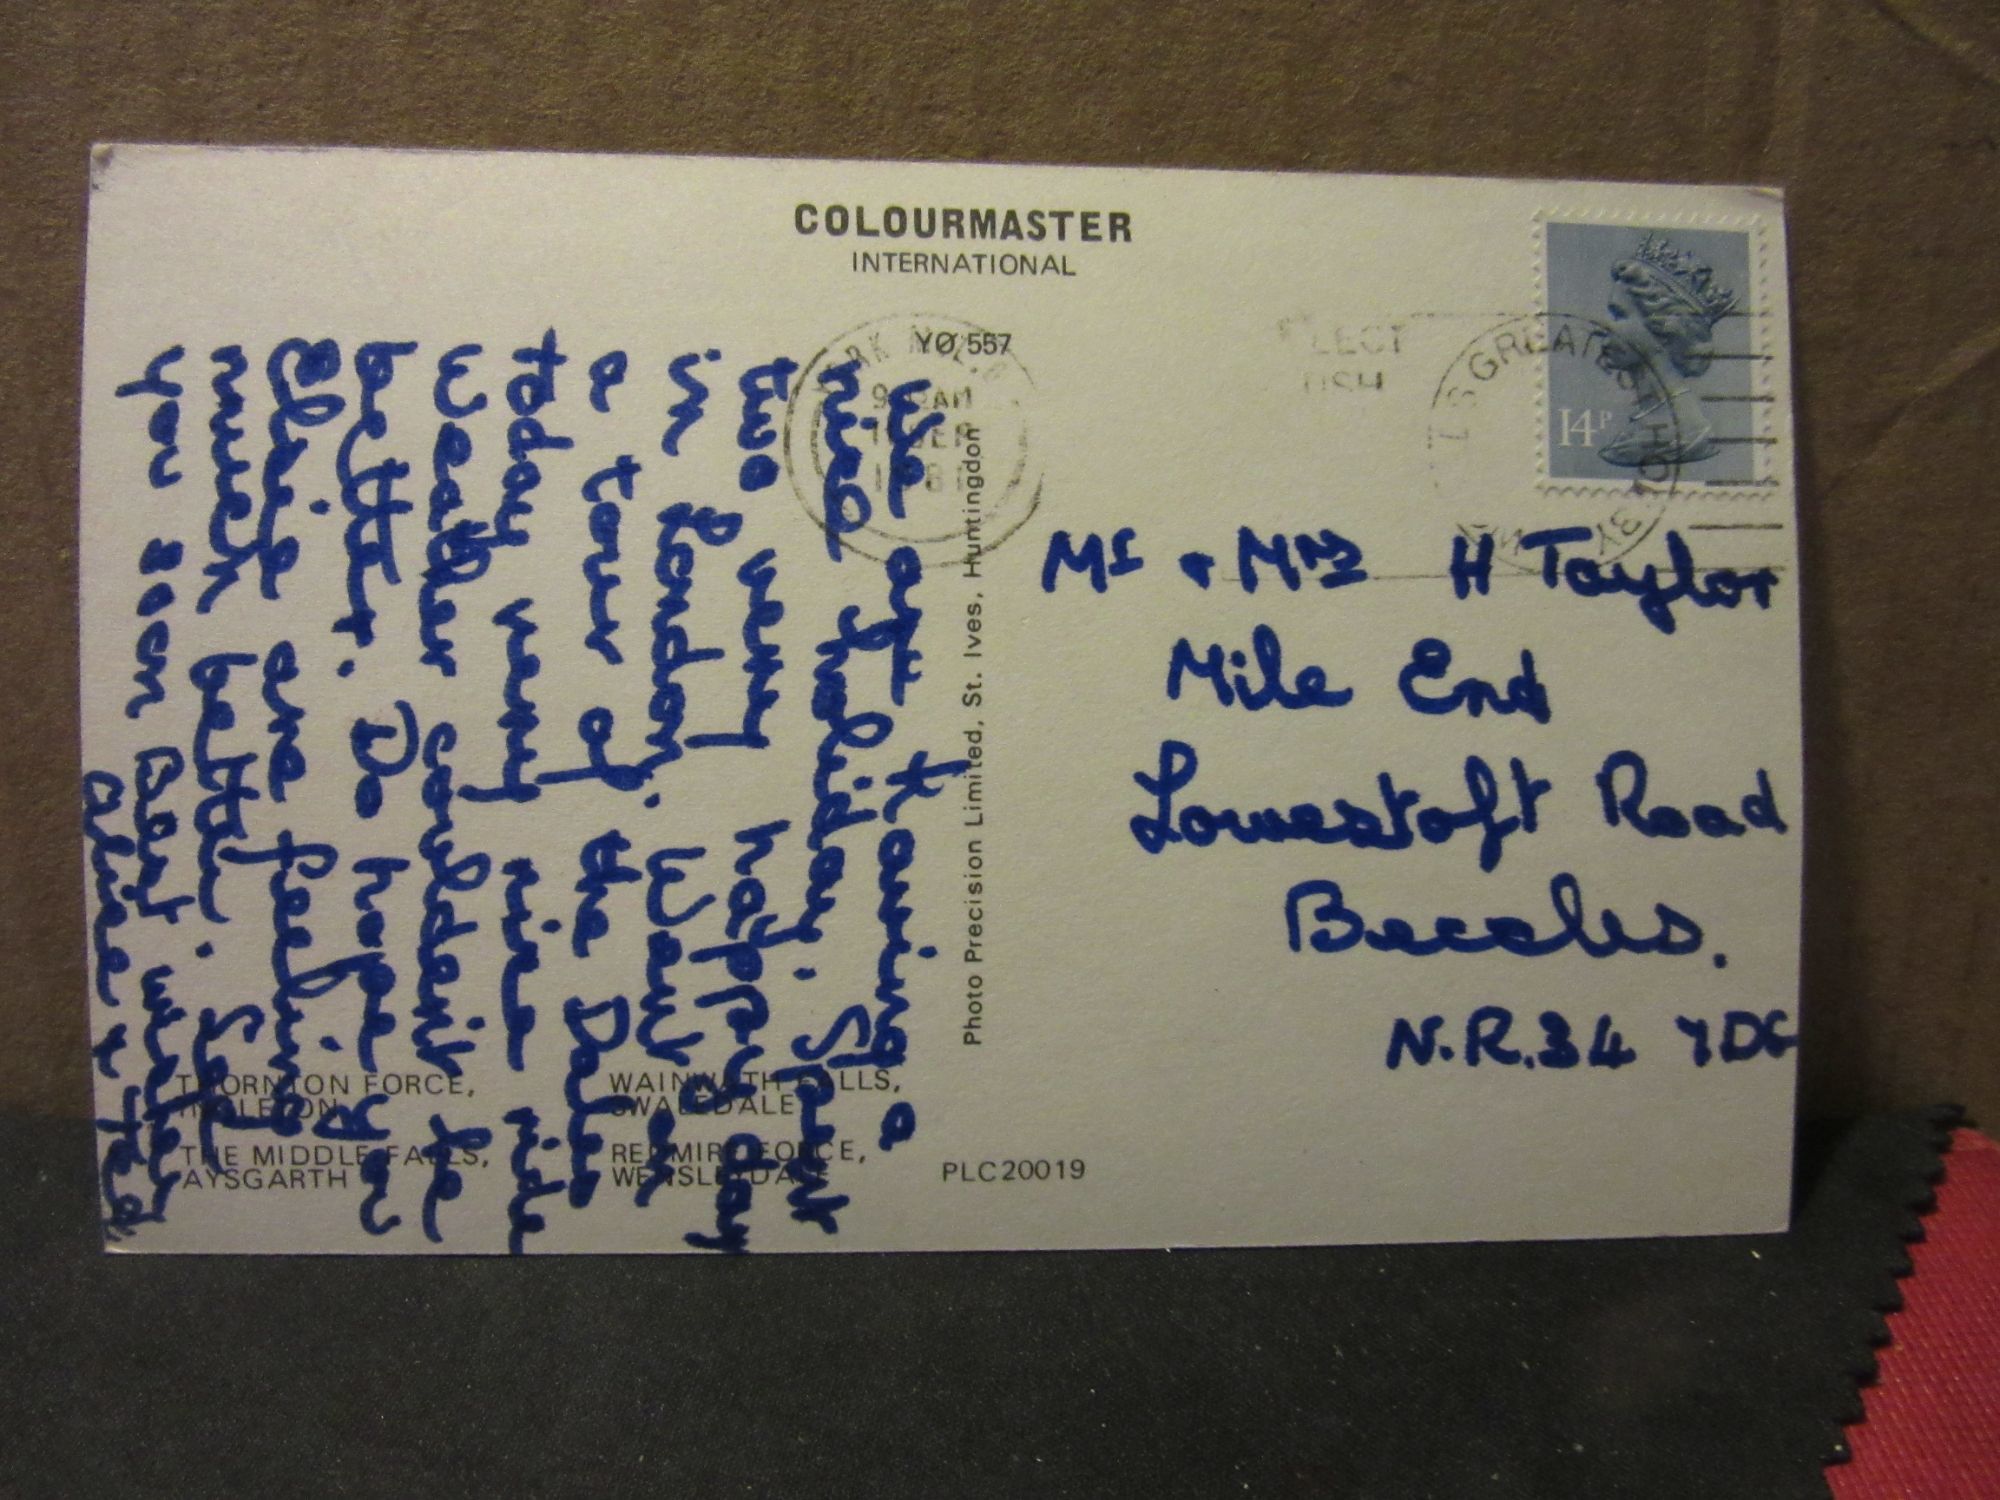 COLOURMASTER
INTERNATIONAL
YO 557
9 AM
SEP
14P
We are having a
nice holiday. Spent
two very happy day
in London. Went on
a tour of the Dales
today very nice ride
Weather couldn't be
better. Do hope you
Elsie are feeling
much better. See
you soon Best wishes
Olive & Ted
Photo Precision Limited, St. Ives, Huntingdon
Mr & Mrs H Taylor
Mile End
Lowestoft Road
Beccles.
N.R.34 7DG
THORNTON FORCE,
INGLETON
WAINWATH FALLS,
SWALEDALE
THE MIDDLE FALLS,
AYSGARTH
REDMIRE FORCE,
WENSLEYDALE
PLC20019